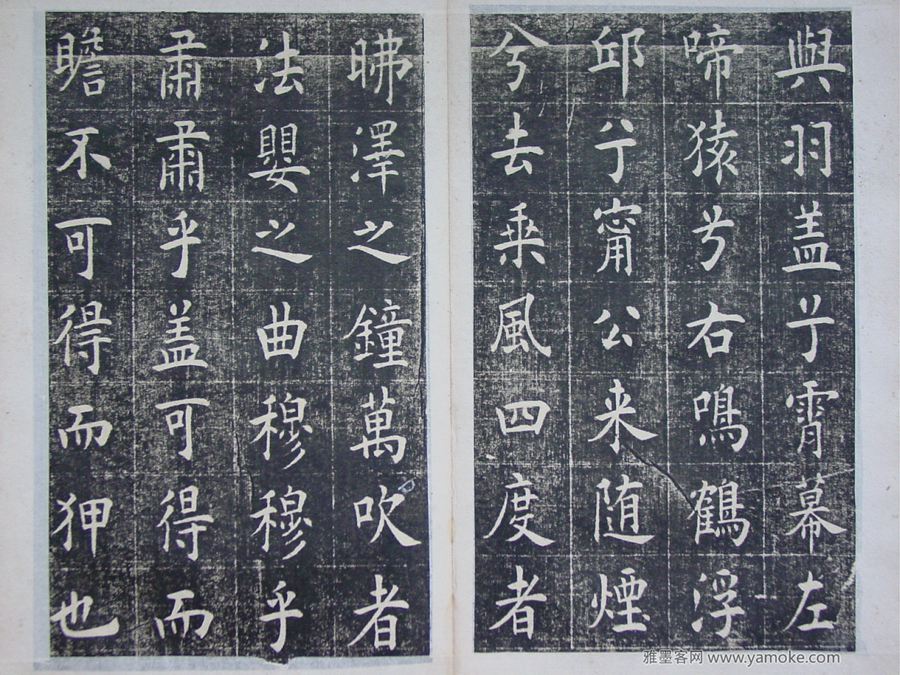 與羽盖兮霄幕左
啼猿兮右鳴鶴浮
邱兮甯公来随煙
兮去乗風四度者
昲澤之鐘萬吹者
法嬰之曲穆穆乎
肅肅乎盖可得而
瞻不可得而狎也
雅墨客网 www.yamoke.com